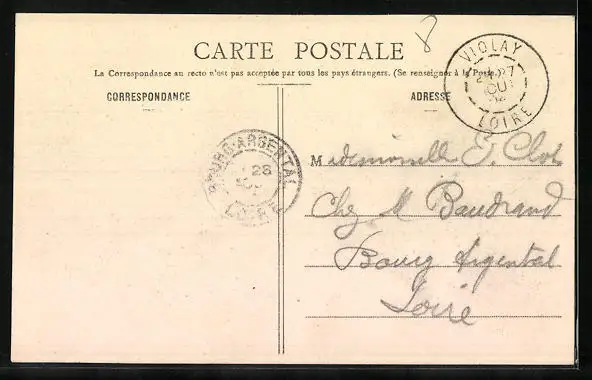 8
CARTE POSTALE
La Correspondance au recto n'est pas acceptée par tous les pays étrangers. (Se renseigner à la Poste.)
CORRESPONDANCE
ADRESSE
VIOLAY
27
LOIRE
BOURG-ARGENTAL
28
LOIRE
Mademoiselle J. Clot
Chez M Baudrand
Bourg Argental
Loire